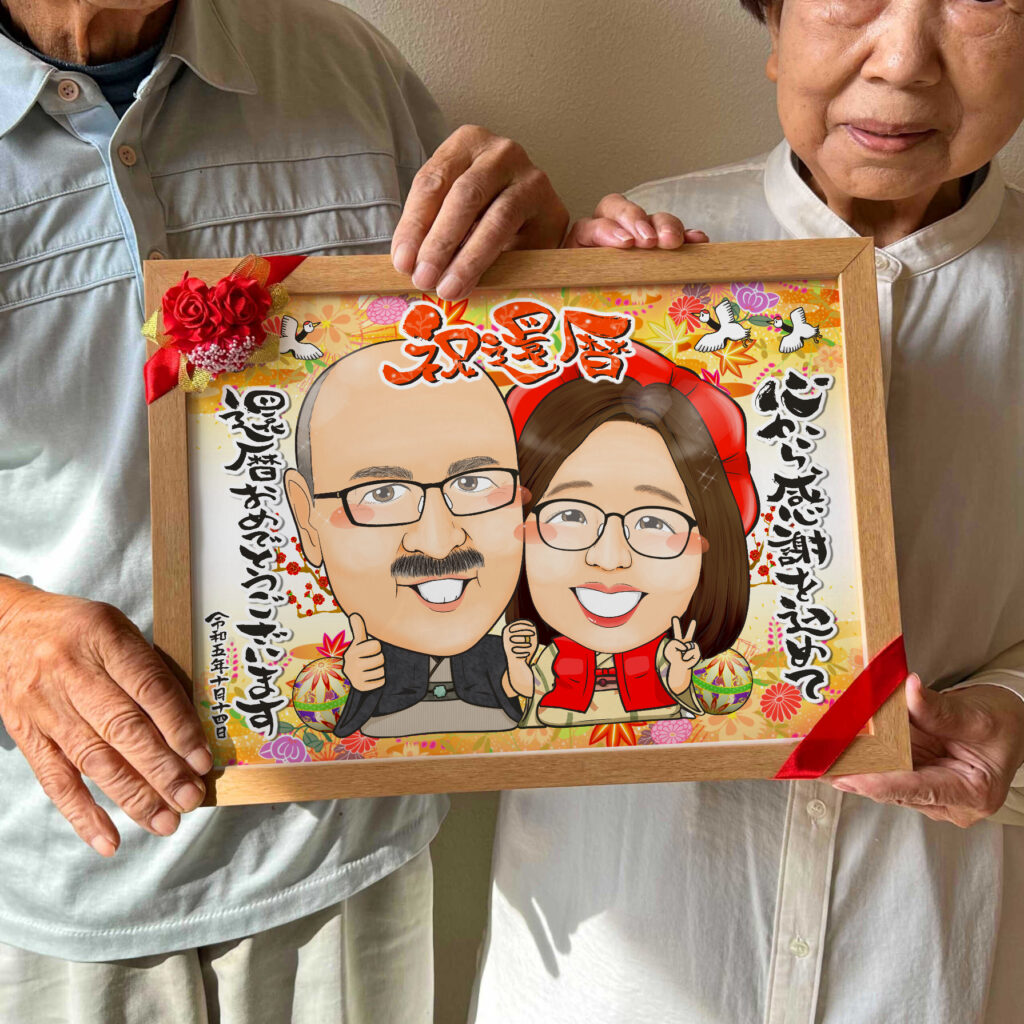 祝還暦
心から感謝を込めて
還暦おめでとうございます
令和五年十月十四日